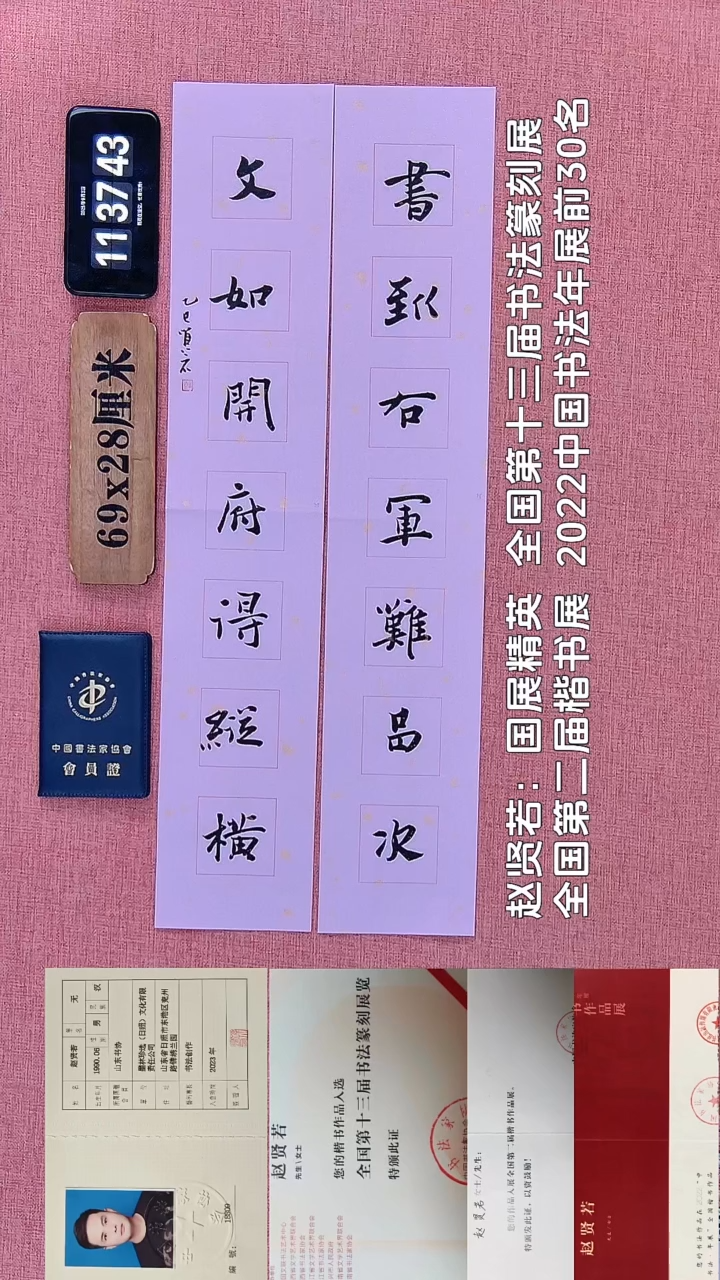 書到右軍難品次
文如開府得縱橫
乙巳賢若
11 37 43
69x28厘米
中國書法家協會
會員證
赵贤若：国展精英 全国第十三届书法篆刻展
全国第二届楷书展 2022中国书法年展前30名
赵贤若
无
1990.06
男
汉
山东书协
山东省日照市东港区兖州路锦绣兰园
书法创作
2023年
编号：
赵贤若
先生\女士
您的楷书作品入选
全国第十三届书法篆刻展览
特颁此证
赵贤若 女士/先生：
您的作品入展全国第二届楷书作品展。
特颁发此证，以资鼓励！
书
作
品
展
赵贤若